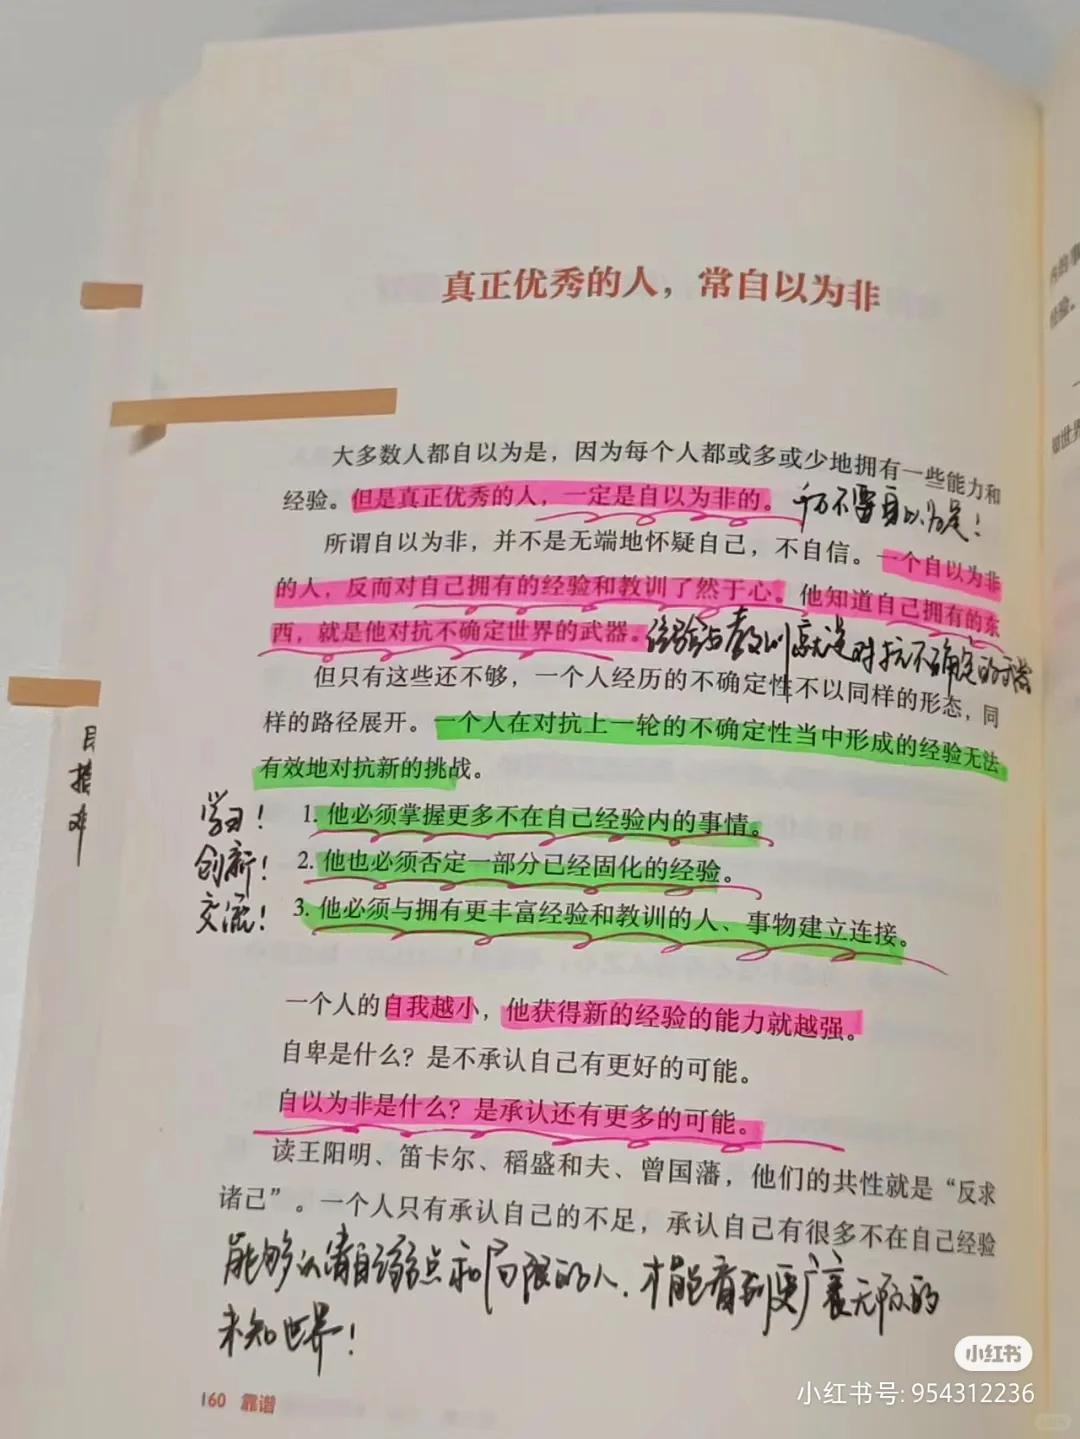 真正优秀的人，常自以为非
大多数人都自以为是，因为每个人都或多或少地拥有一些能力和
经验。但是真正优秀的人，一定是自以为非的。
千万不要自以为是！
所谓自以为非，并不是无端地怀疑自己，不自信。一个自以为非
的人，反而对自己拥有的经验和教训了然于心。他知道自己拥有的东
西，就是他对抗不确定世界的武器。
经验与教训就是对抗不确定的武器
但只有这些还不够，一个人经历的不确定性不以同样的形态，同
样的路径展开。一个人在对抗上一轮的不确定性当中形成的经验无法
有效地对抗新的挑战。
学习！
1. 他必须掌握更多不在自己经验内的事情。
创新！
2. 他也必须否定一部分已经固化的经验。
交流！
3. 他必须与拥有更丰富经验和教训的人、事物建立连接。
一个人的自我越小，他获得新的经验的能力就越强。
自卑是什么？是不承认自己有更好的可能。
自以为非是什么？是承认还有更多的可能。
读王阳明、笛卡尔、稻盛和夫、曾国藩，他们的共性就是“反求
诸己”。一个人只有承认自己的不足，承认自己有很多不在自己经验
能够认清自己弱点和局限的人，才能看到更广袤无垠的
未知世界！
160 靠谱
小红书
小红书号: 954312236